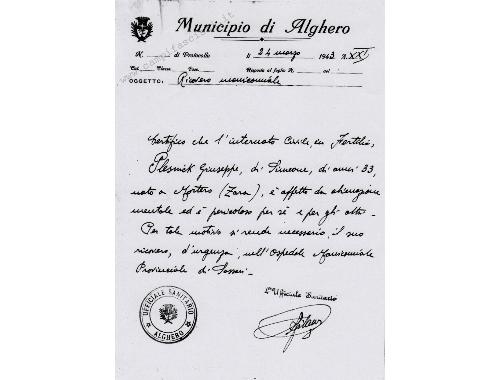 Municipio di Alghero
N. di Protocollo lì 24 marzo 1943 A. XXI
Cat. Classe Fasc. Risposta al foglio N. del
OGGETTO: Ricovero manicomiale
Certifico che l'internato Civile, in Fertilia,
Plesnick Giuseppe, di Simeone, di anni 33,
nato a Mortero (Zara), è affetto da alienazione
mentale ed è pericoloso per sé e per gli altri -
Per tale motivo si rende necessario il suo
ricovero, d'urgenza, nell'Ospedale Manicomiale
Provinciale di Sassari -
L'Ufficiale Sanitario
UFFICIALE SANITARIO
ALGHERO